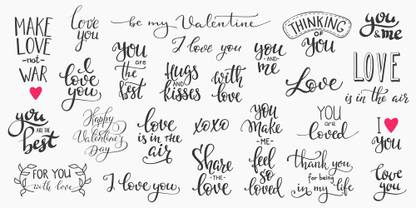 MAKE
LOVE
-not-
WAR
love
you
be my Valentine
THINKING
of
you
you
& me
I
love
you
you
are
the
best
I love you
you
and
me
Hugs
and
kisses
with
love
Love
LOVE
is in the air
you
ARE THE
best
Happy
Valentine's
Day
love
is in the
air
xoxo
you
MAKE
-ME-
feel
so
loved
YOU
are
loved
I
you
FOR YOU
with love
I love you
Share
-THE-
love
thank you
for being
in my life
love
you